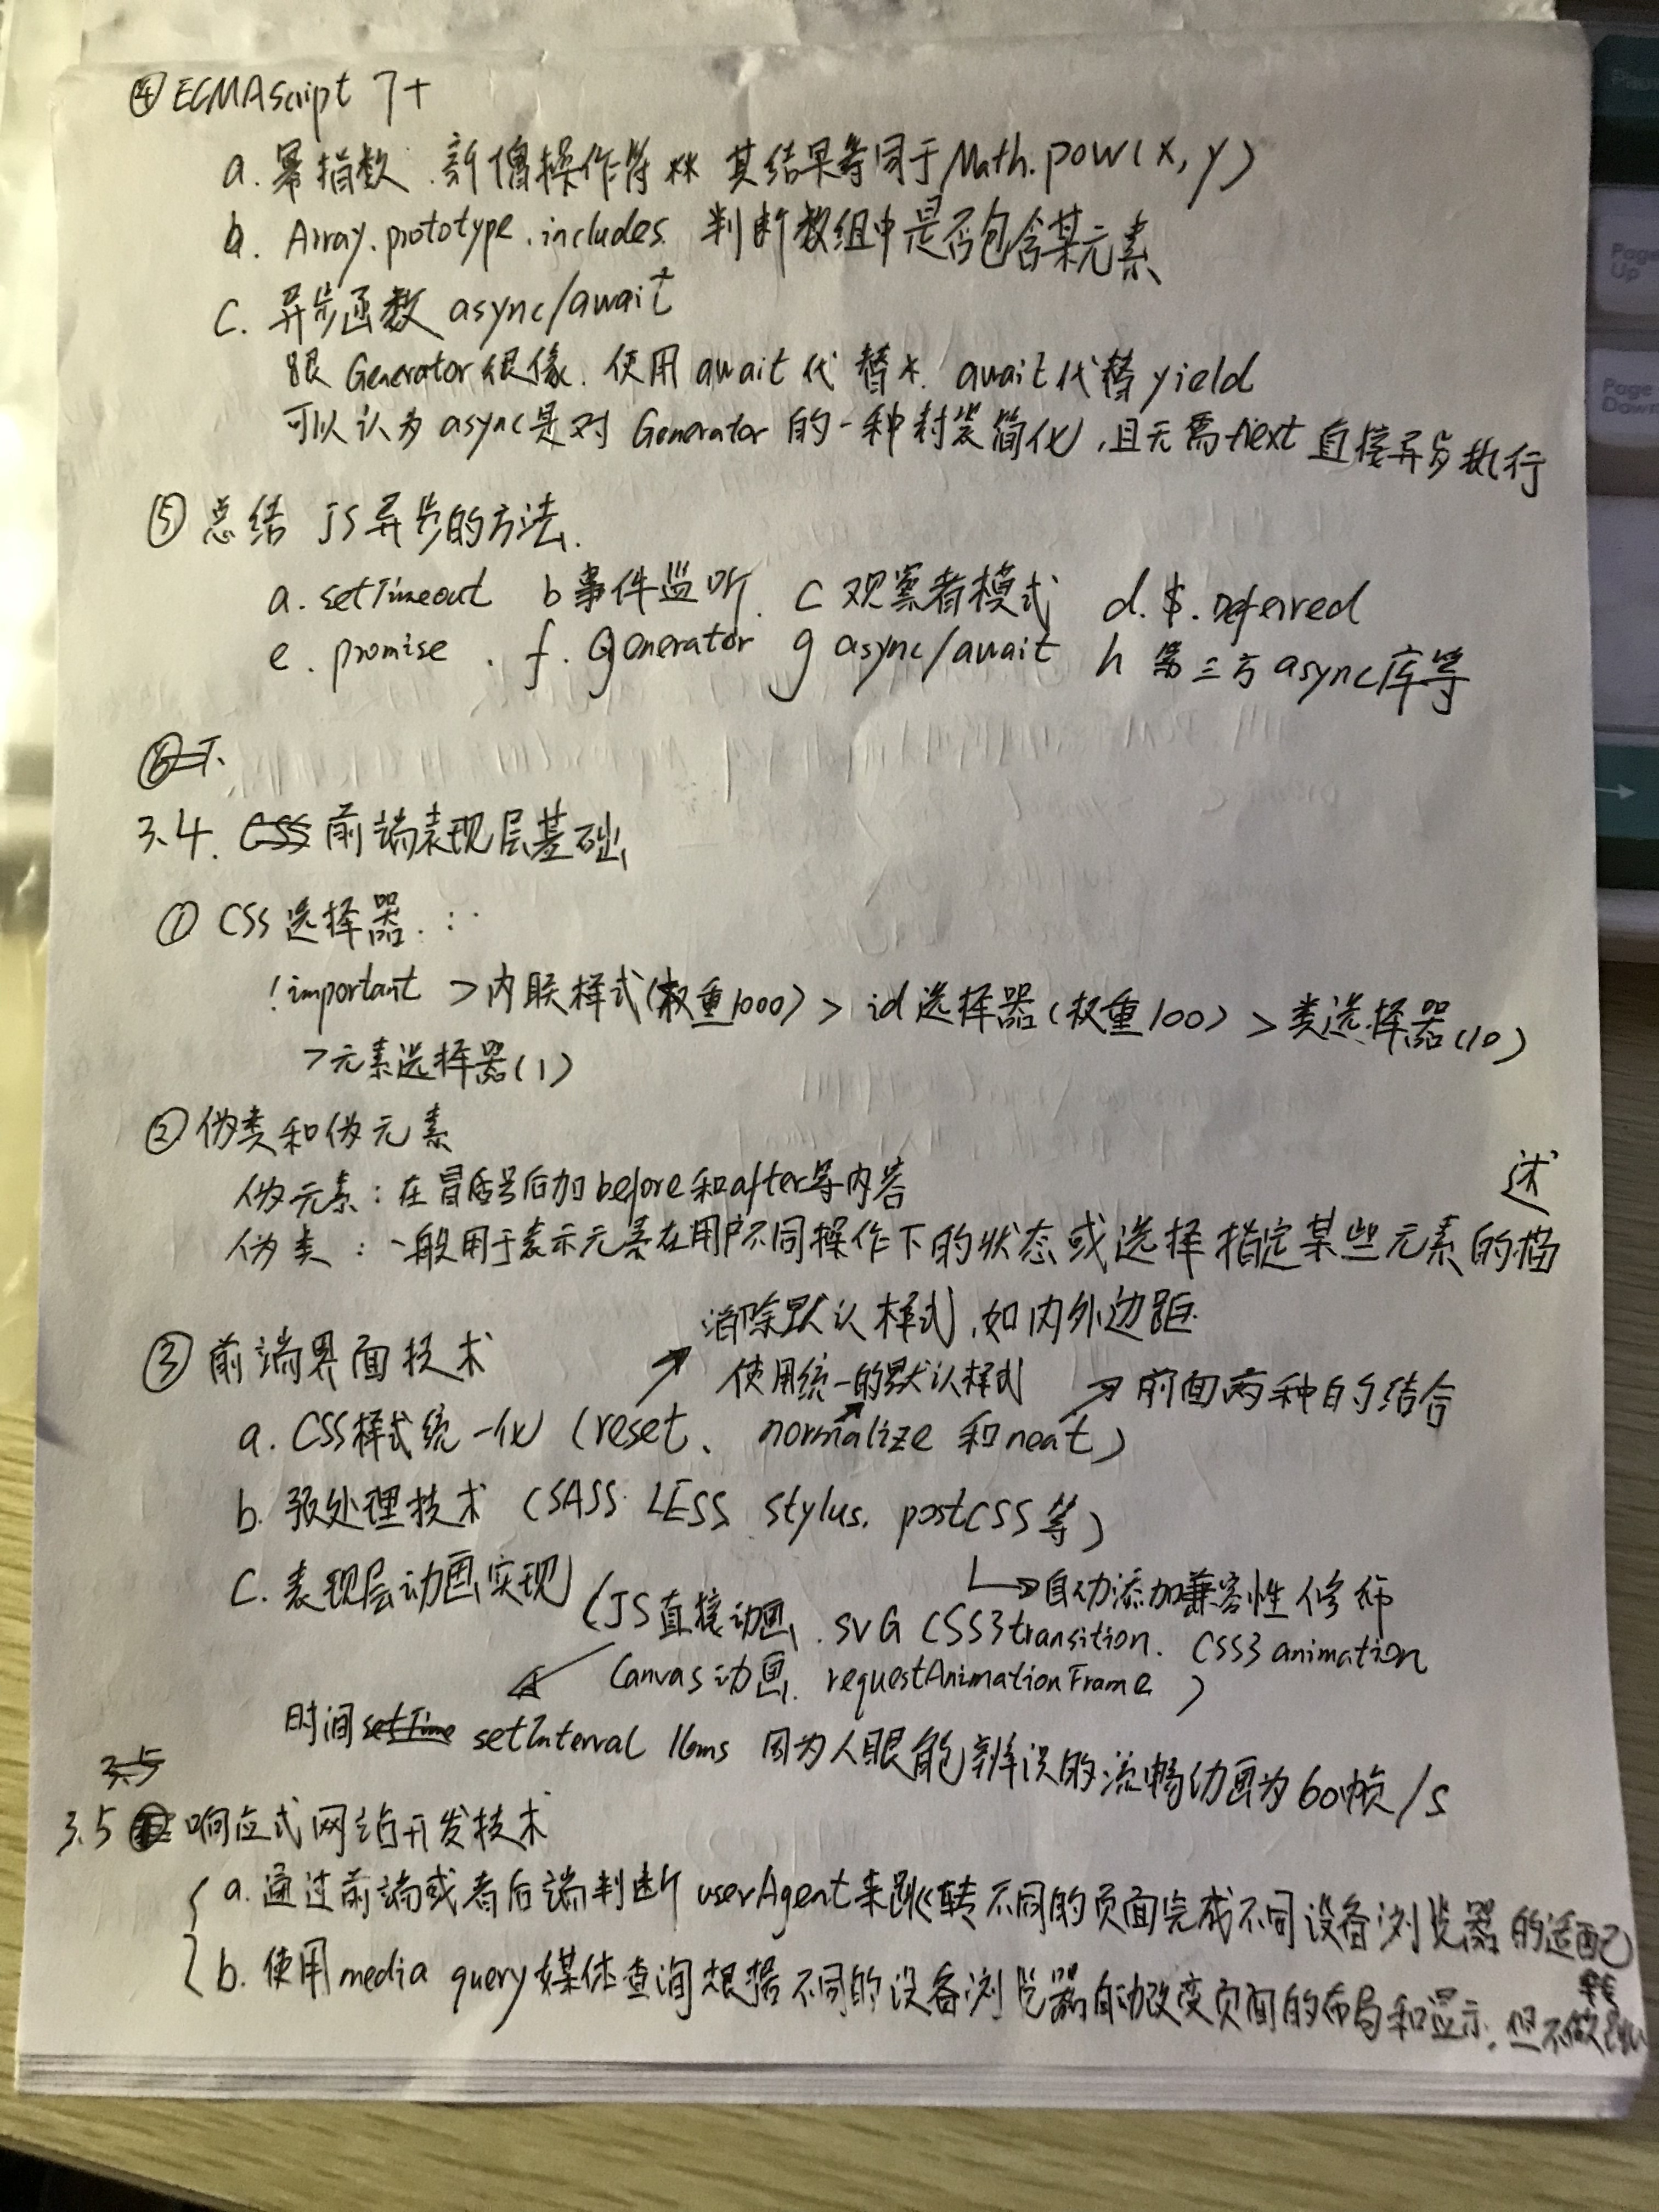 ④ ECMAScript 7+
a. 幂指数. 新增操作符 ** 其结果等同于Math.pow(x, y)
b. Array.prototype.includes. 判断数组中是否包含某元素
c. 异步函数 async/await
跟 Generator很像. 使用 await 代替*. await代替yield
可以认为 async是对 Generator 的一种封装简化, 且无需next 直接异步执行
⑤ 总结 JS异步的方法.
a. setTimeout b 事件监听. c 观察者模式 d. $. Deferred
e. promise . f. Generator g async/await h 第三方async库等
⑥
3.4. CSS 前端表现层基础
① CSS 选择器. :
!important >内联样式(权重1000) > id 选择器(权重100) > 类选择器(10)
>元素选择器(1)
② 伪类和伪元素
伪元素: 在冒号后加before和after等内容
述
伪类: 一般用于表示元素在用户不同操作下的状态或选择指定某些元素的描
消除默认样式, 如内外边距
③ 前端界面技术
使用统一的默认样式
前面两种的结合
a. CSS样式统一化 (reset、 normalize 和neat)
b. 预处理技术 (SASS. LESS. stylus. postCSS 等)
自动添加兼容性修饰
c. 表现层动画实现
(JS直接动画. SVG CSS3transition. CSS3 animation
Canvas动画. requestAnimationFrame )
时间 setTime setInterval 16ms 因为人眼能辨识的流畅动画为60帧/s
3.5
3.5 响应式网站开发技术
a. 通过前端或者后端判断 userAgent来跳转不同的页面完成不同设备浏览器的适配
b. 使用media query媒体查询根据不同的设备浏览器自动改变页面的布局和显示, 但不做跳
转